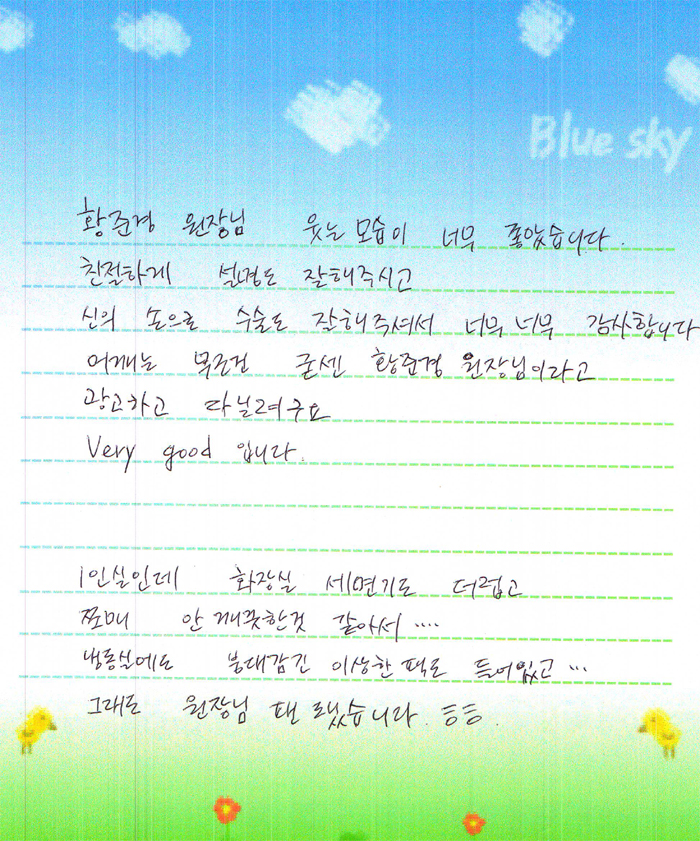 Blue sky
황준경 원장님 웃는 모습이 너무 좋았습니다.
친절하게 설명도 잘해주시고
신의 손으로 수술도 잘해주셔서 너무 너무 감사합니다
어깨는 무조건 굳센 황준경 원장님이라고
광고하고 다닐려구요
Very good 입니다.
1인실인데 화장실 세면기도 더럽고
쪼매 안 깨끗한것 같아서 ....
냉동실에도 붕대감긴 이상한 팩도 들어있고 ...
그래도 원장님 땜